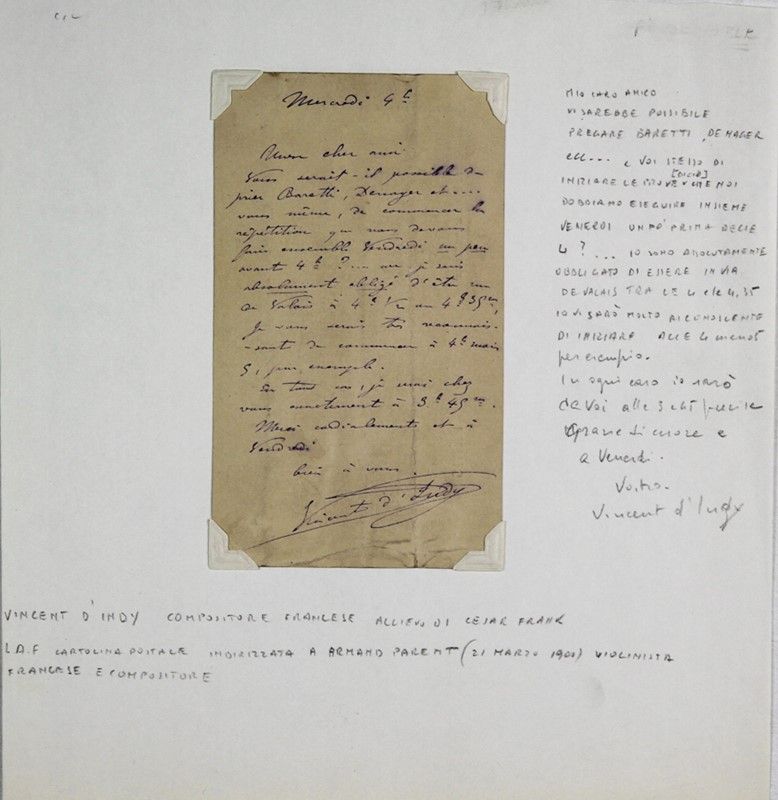 Mercredi 4h
Mon cher ami
Vous serait-il possible de
prier Baretti, Denayer et....
vous même, de commencer la
répétition que nous devons
faire ensemble Vendredi un peu
avant 4h ?... car je suis
absolument obligé d'être rue
de Valois à 4h 1/2 ou 4h 35m,
Je vous serais très reconnais-
-sant de commencer à 4h moins
5, par exemple.
En tout cas, je serai chez
vous exactement à 3h 45m.
Merci cordialement et à
Vendredi
bien à vous
Vincent d'Indy
MIO CARO AMICO
VI SAREBBE POSSIBILE
PREGARE BARETTI, DENAGER
ecc.... e VOI STESSO DI
INIZIARE LE PROVE CHE NOI
DOBBIAMO ESEGUIRE INSIEME
VENERDI UN PÒ PRIMA DELLE
4 ?... IO SONO ASSOLUTAMENTE
OBBLIGATO DI ESSERE IN VIA
DE VALAIS TRA LE 4 e le 4,35
IO VI SARÒ MOLTO RICONOSCENTE
DI INIZIARE ALLE 4 meno 5
per esempio.
In ogni caso io sarò
da Voi alle 3 e 45 precise
Grazie di cuore e
a Venerdi.
Vostro.
Vincent d'Indy
VINCENT D'INDY COMPOSITORE FRANCESE ALLIEVO DI CESAR FRANK
L.A.F CARTOLINA POSTALE INDIRIZZATA A ARMAND PARENT (21 MARZO 1900) VIOLINISTA
FRANCESE E COMPOSITORE